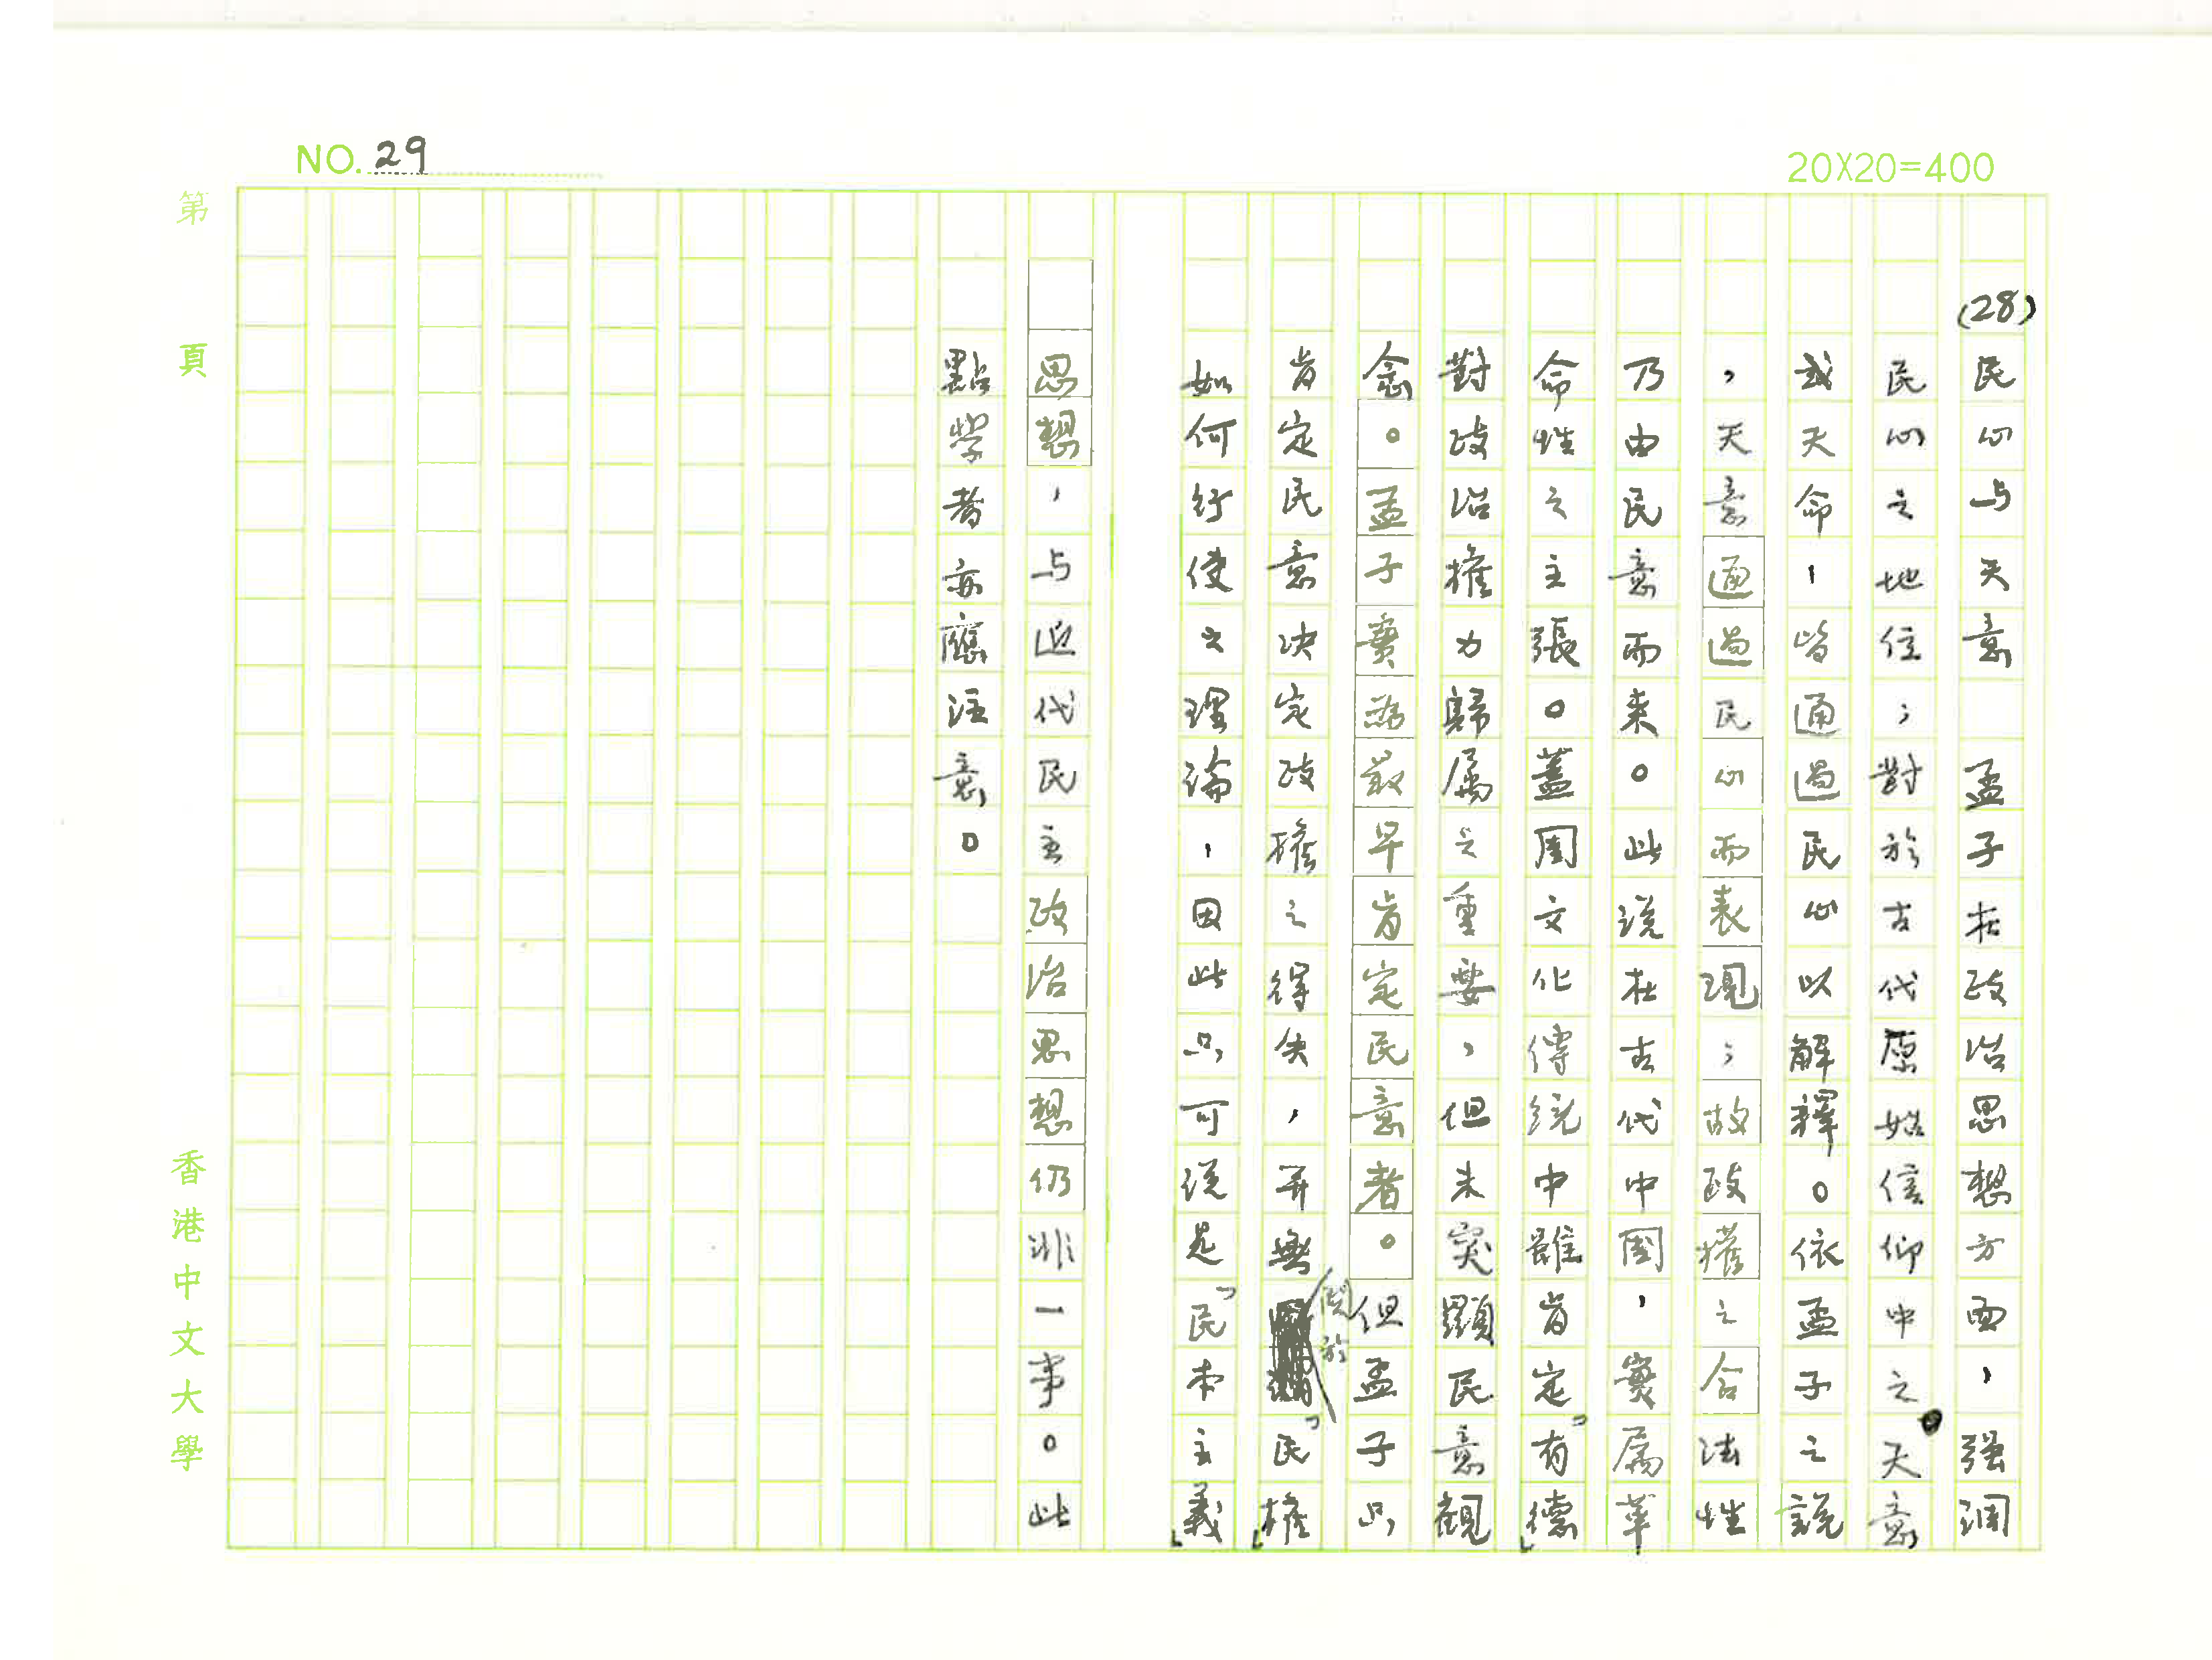 NO. 29
20X20=400
(28)
民心与天意　孟子在政治思想方面，强調
民心之地位；對於古代原始信仰中之天意
或天命，皆通過民心以解釋。依孟子之說
，天意通過民心而表現；故政權之合法性
乃由民意而来。此说在古代中國，實属革
命性之主張。蓋周文化傳统中雖肯定「有德」
對政治權力歸属之重要，但未突顯民意觀
念。孟子實為最早肯定民意者。但孟子只
肯定民意决定政權之得失，并無關於「民權」
如何行使之理論，因此只可说是「民本主義」
思想，与近代民主政治思想仍非一事。此
點学者亦應注意。
第　頁
香港中文大學